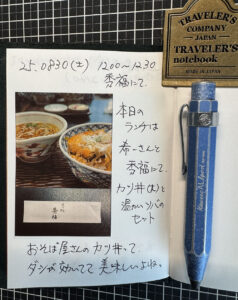 25.0830(土) 12:00〜12:30
秀福にて.
本日の
ランチは
寿一さんと
秀福にて.
カツ丼(大)と
温かいソバの
セット
おそば屋さんのカツ丼って
ダシが効いてて 美味しいよね。
TRAVELER'S
COMPANY
JAPAN
TRAVELER'S
notebook
MADE IN JAPAN